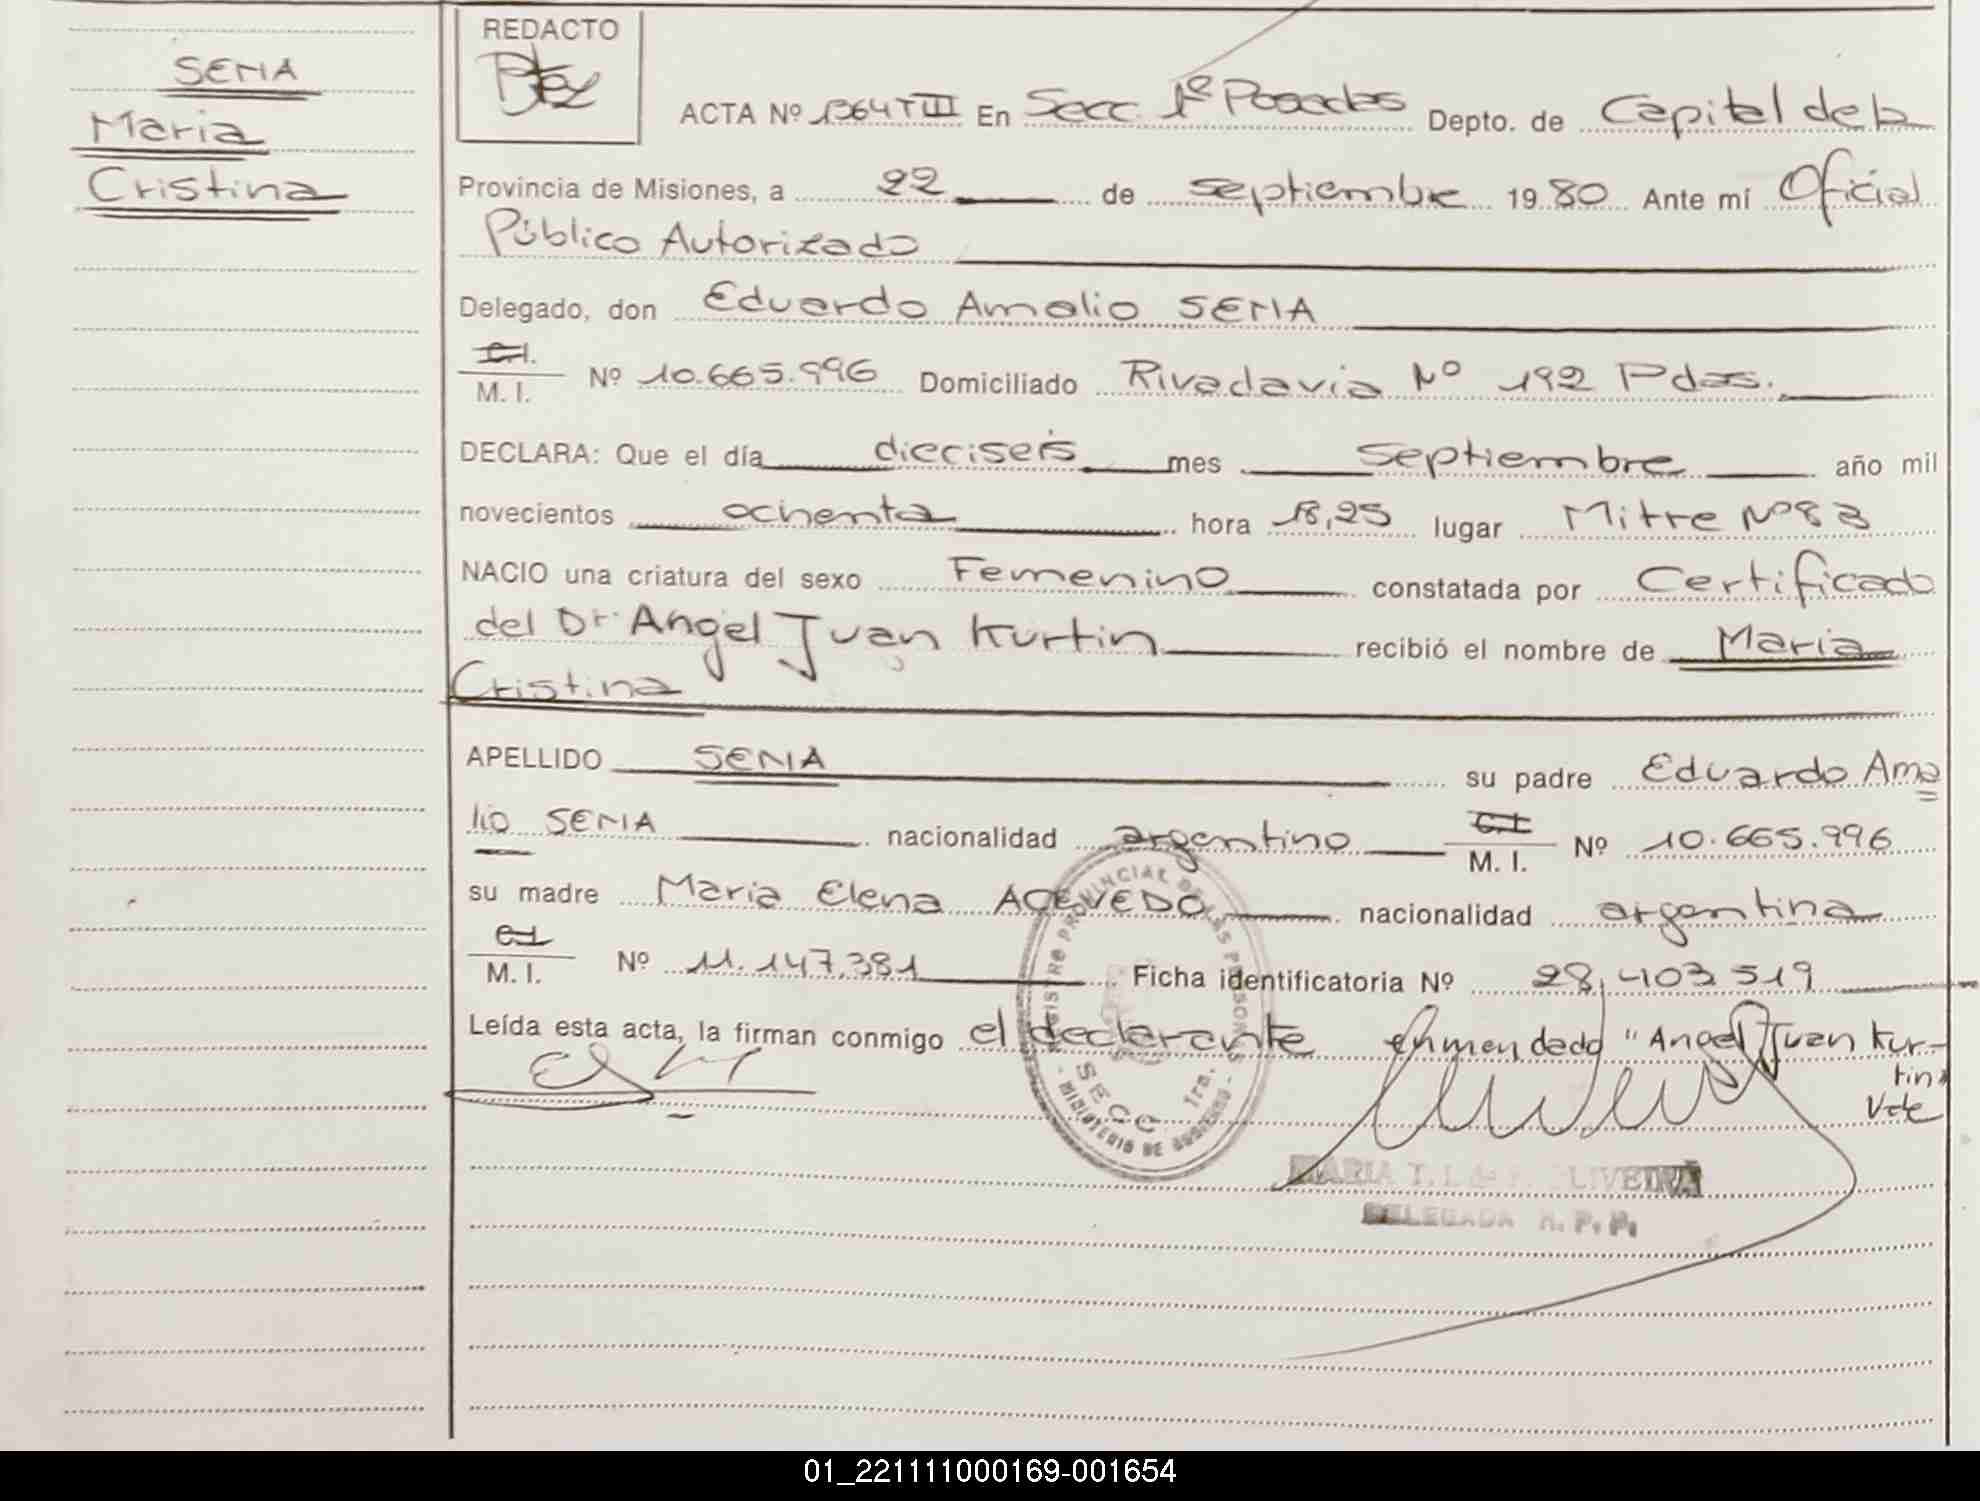 SENA
Maria
Cristina
REDACTO
ACTA Nº 1364 T III En Secc. 1º Posadas Depto. de Capital de la
Provincia de Misiones, a 22 de septiembre 1980 Ante mí Oficial
Público Autorizado
Delegado, don Eduardo Amalio SENA
C.I.
M. I. Nº 10.665.996 Domiciliado Rivadavia Nº 192 Pdas.
DECLARA: Que el día dieciseis mes Septiembre año mil
novecientos ochenta hora 18,25 lugar Mitre Nº 83
NACIO una criatura del sexo Femenino constatada por Certificado
del Dr Angel Juan Kurtin recibió el nombre de Maria
Cristina
APELLIDO SENA su padre Eduardo Ama
lio SENA nacionalidad argentino C.I. M. I. Nº 10.665.996
su madre Maria Elena ACEVEDO nacionalidad argentina
C.I.
M. I. Nº 11.147.381 Ficha identificatoria Nº 28,403.519
Leída esta acta, la firman conmigo el declarante enmendado "Angel Juan Kur-
tin"
Vale
REGISTRO PROVINCIAL DE LAS PERSONAS
SECC 1ra.
- MINISTERIO DE GOBIERNO -
MARIA T. L. de OLIVEIRA
DELEGADA R. P. P.
01_221111000169-001654